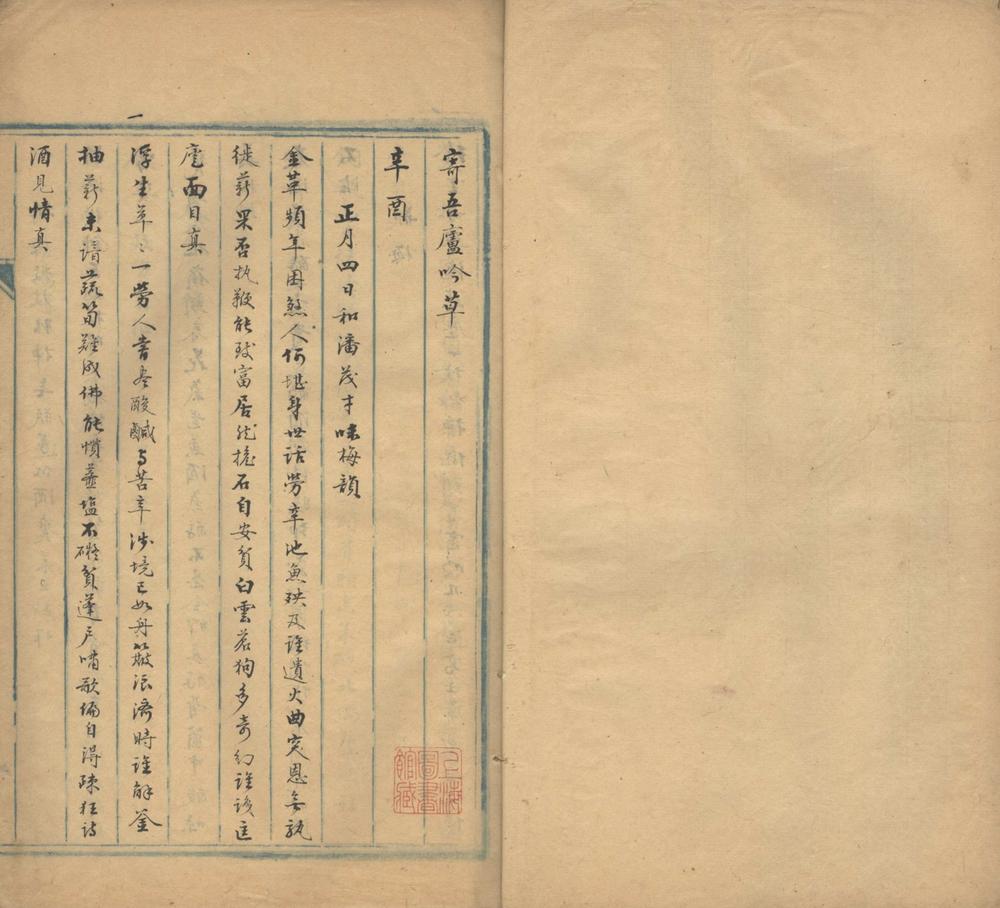 寄吾廬吟草
辛酉
正月四日和潘茂才味梅韻
金革頻年困煞人何堪身世話勞辛池魚殃及誰遺火曲突恩無孰
徙薪果否執鞭能致富居然擔石自安貧白雲蒼狗多奇幻誰識匡
廬面目真
浮生草〻一勞人嘗盡酸鹹与苦辛涉境已如舟簸浪濟時誰解釜
抽薪未諳蔬筍難成佛能慣虀塩不礙貧蓬戶嘯歌偏自得疎狂詩
酒見情真
一
上海圖書館藏